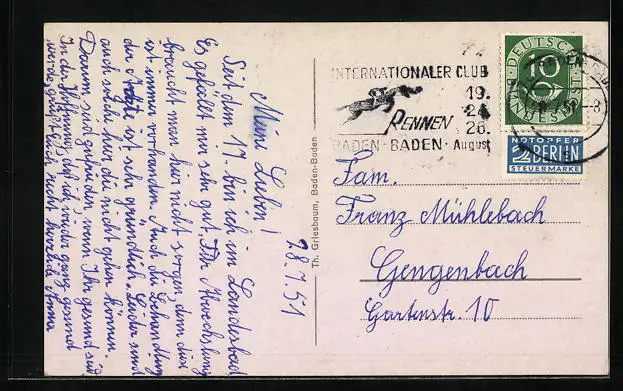 28.7.51
Meine Lieben!
Seit dem 17. bin ich im Landesbad
Es gefällt mir sehr gut. Für Abwechslung
braucht man hier nicht sorgen, denn diese
ist immer vorhanden. Auch die Behandlung
der Ärzte ist sehr gründlich. Leider sind
auch viele hier die nicht gehen können.
Darum sind zufrieden, wenn Ihr gesund seid.
In der Hoffnung daß ich wieder ganz gesund
werde, grüßt Euch recht herzlich Anna
Th. Griesbaum, Baden-Baden
INTERNATIONALER CLUB
19.
24.
RENNEN 26.
BADEN-BADEN · August
DEUTSCHE
10
BUNDESPOST
NOTOPFER
2 BERLIN
STEUERMARKE
Fam.
Franz Mühlebach
Gengenbach
Gartenstr. 10